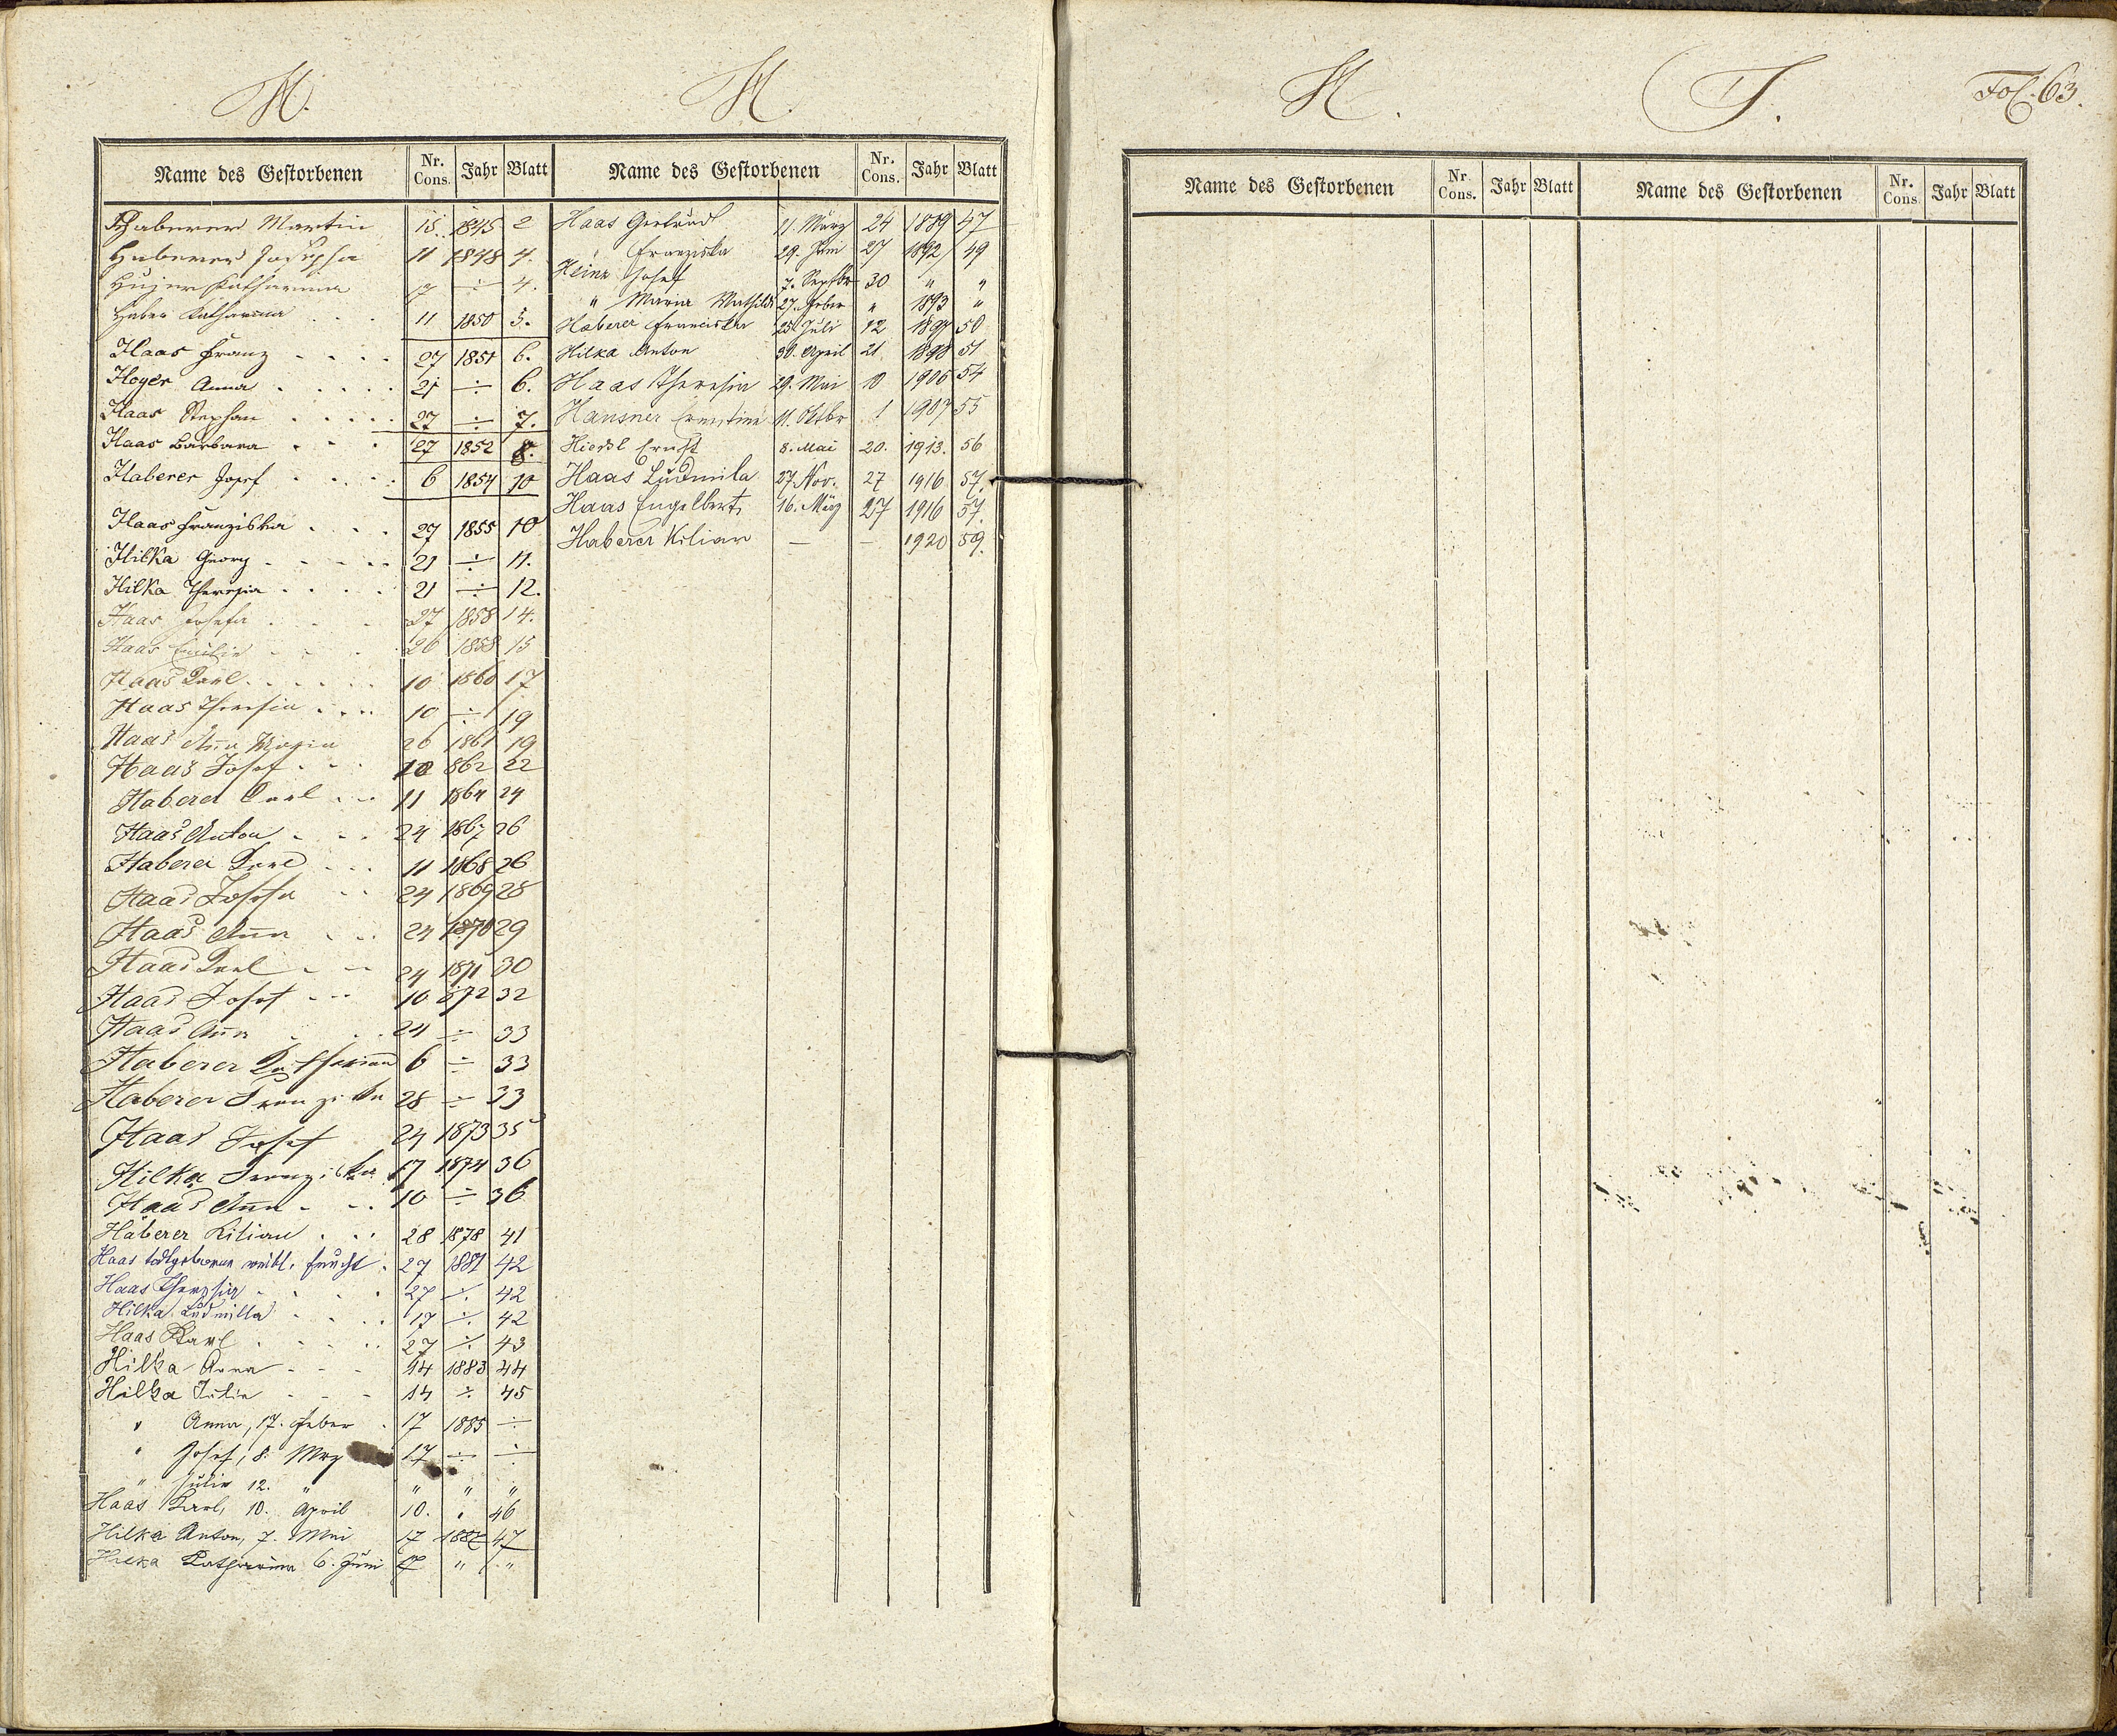 H.
Name des Gestorbenen Nr. Cons. Jahr Blatt
Haberer Martin 15. 1845 2
Haberer Josepha 11 1848 4.
Hujer Katharina 17 ÷ 4.
Haber Katharina 11 1850 5.
Haas Franz 27 1851 6.
Hoyer Anna 21 ÷ 6.
Haas Stephan 27 ÷ 7.
Haas Barbara 27 1852 8.
Haberer Josef 6 1854 10
Haas Franziska 27 1855 10
Hilka Georg 21 ÷ 11.
Hilka Theresia 21 ÷ 12.
Haas Josefa 27 1858 14.
Haas Emilie 26 1858 15
Haas Karl 10 1860 17
Haas Theresia 10 ÷ 19
Haas Anna Maria 26 1861 19
Haas Josef 10 862 22
Haberer Carl 11 1864 24
Haas Anton 24 1867 26
Haberer Karl 11 1868 26
Haas Josefa 24 1869 28
Haas Anna 24 1870 29
Haas Karl 24 1871 30
Haas Josef 10 872 32
Haas Anna 24 ÷ 33
Haberer Katharina 6 ÷ 33
Haberer Franziska 28 ÷ 33
Haas Josef 24 1873 35
Hilka Franziska 17 1874 36
Haas Anna 10 ÷ 36
Haberer Kilian 28 1878 41
Haas todtgeborene weibl. Frucht 27 1881 42
Haas Theresia 27 ÷ 42
Hilka Ludmilla 17 ÷ 42
Haas Karl 27 ÷ 43
Hilka Anna 14 1883 44
Hilka Julie 14 ÷ 45
" Anna, 17. Feber 17 1885 ÷
" Josef, 8. Mrz 17 ÷ ÷
" Julie 12. " " " "
Haas Karl, 10. April 10. " 46
Hilka Anton, 7. Mai 17 1887 47
Hilka Katharina 6. Juni 17 " "
H.
Name des Gestorbenen Nr. Cons. Jahr Blatt
Haas Gertrud 21. März 24 1889 47
" Franziska 29. Juni 27 1892 49
Heinz Josef 7. Septbr 30 " "
" Maria Mathilde 27. Feber " 1893 "
Haberer Franciska 25. Juli 12 1897 50
Hilka Anton 30. April 21 1898 51
Haas Theresia 29. Mai 10 1906 54
Hansner Ernestine 11. Oktbr 1 1907 55
Hiessl Ernst 8. Mai 20. 1913. 56
Haas Ludmila 27. Nov. 27 1916 57.
Haas Engelbert 16. März 27 1916 57.
Haberer Kilian — — 1920 59.
H.
Name des Gestorbenen Nr. Cons. Jahr Blatt
J.
Fol. 63.
Name des Gestorbenen Nr. Cons. Jahr Blatt